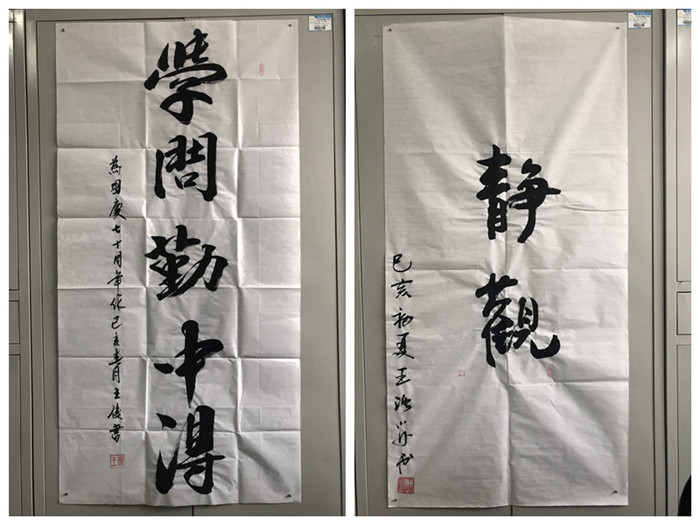 學問勤中得
為國慶七十周年作己亥春月王俊書
靜觀
己亥初夏王